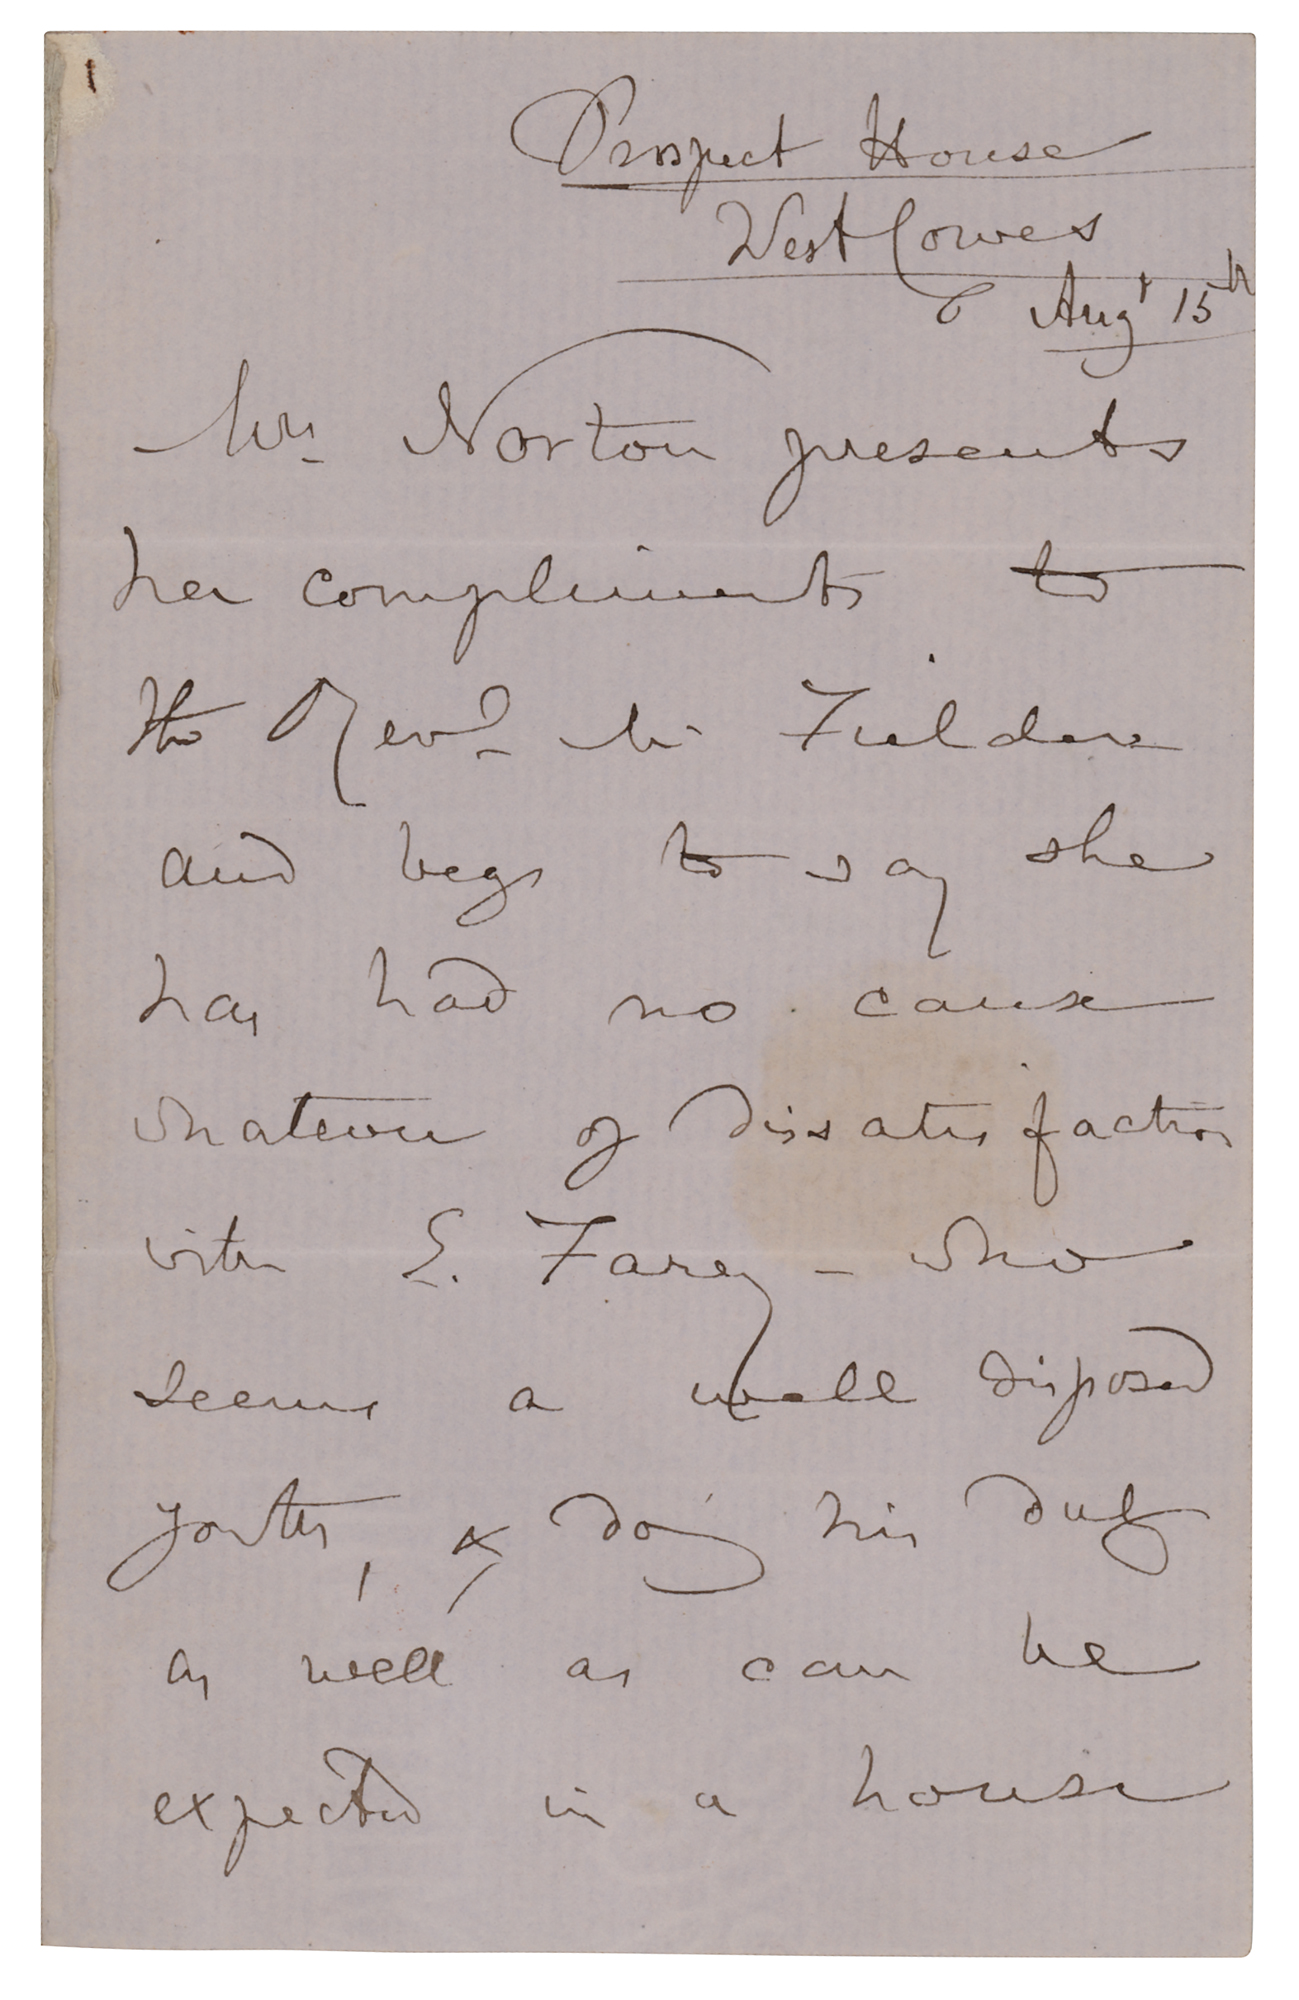 Prospect House
West Cowes
Augt 15th
Mrs Norton presents
her compliments to
the Revd Mr Fielden
and begs to say she
has had no cause
whatever of dissatisfaction
with E. Farey - who
seems a well disposed
youth, & doing his duty
as well as can be
expected in a house